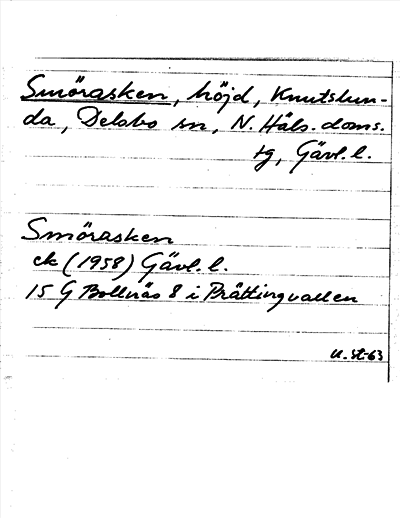 Smörasken, höjd, Knutslun-
da, Delsbo sn, N. Häls. doms.
tg, Gävl. l.
Smörasken
ek (1958) Gävl. l.
15 G Bollnäs 8 i Prättingvallen
U. St-63